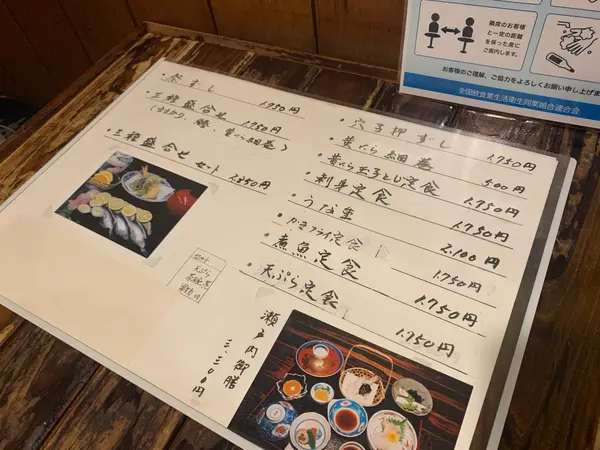 ・祭ずし
・三種盛合せ
(ままかり、鰆、黄にら細巻)
・三種盛合せセット 1,850円
セット
天ぷら
瀬戸内御膳
三、三〇〇円
・穴子押ずし 1,750円
・黄にら細巻 500円
・黄にら玉子とじ定食 1,750円
・刺身定食 1,750円
・うな重 2,100円
・かきフライ定食 1,750円
・煮魚定食 1,750円
・天ぷら定食 1,750円
隣席のお客様
と一定の距離
を保った席に
ご案内します。
お客様のご理解、ご協力をよろしくお願い申し上げま
全国飲食業生活衛生同業組合連合会